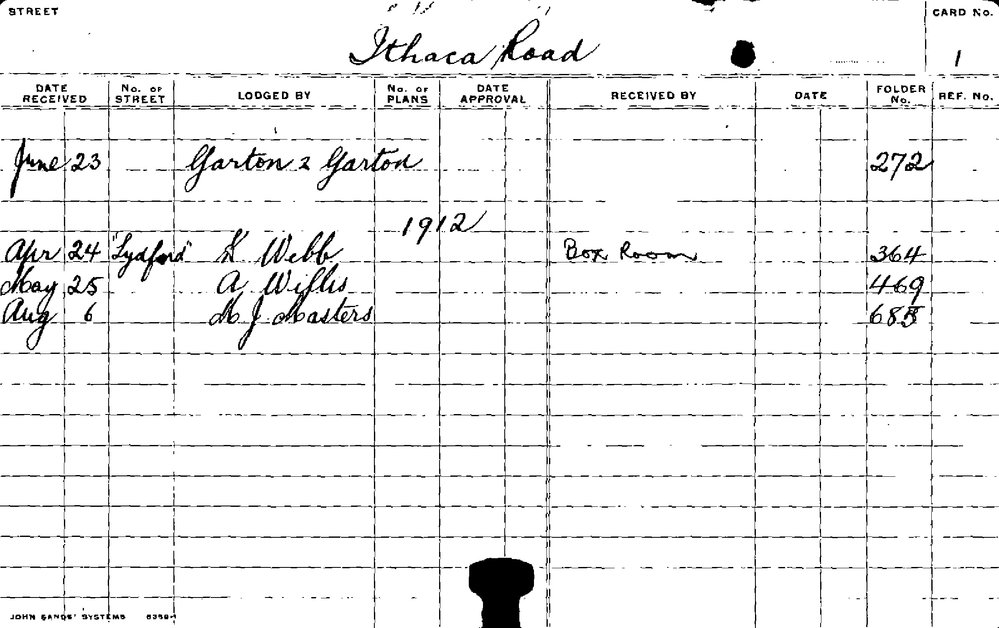 STREET Ithaca Road CARD No. 1
DATE RECEIVED No. OF STREET LODGED BY No. OF PLANS DATE APPROVAL RECEIVED BY DATE FOLDER No. REF. No.
June 23 Garton & Garton 272
1912
Apr 24 "Lydford" Webb Box Room 364
May 25 A Willis 469
Aug 6 M J Masters
JOHN SANDS' SYSTEMS